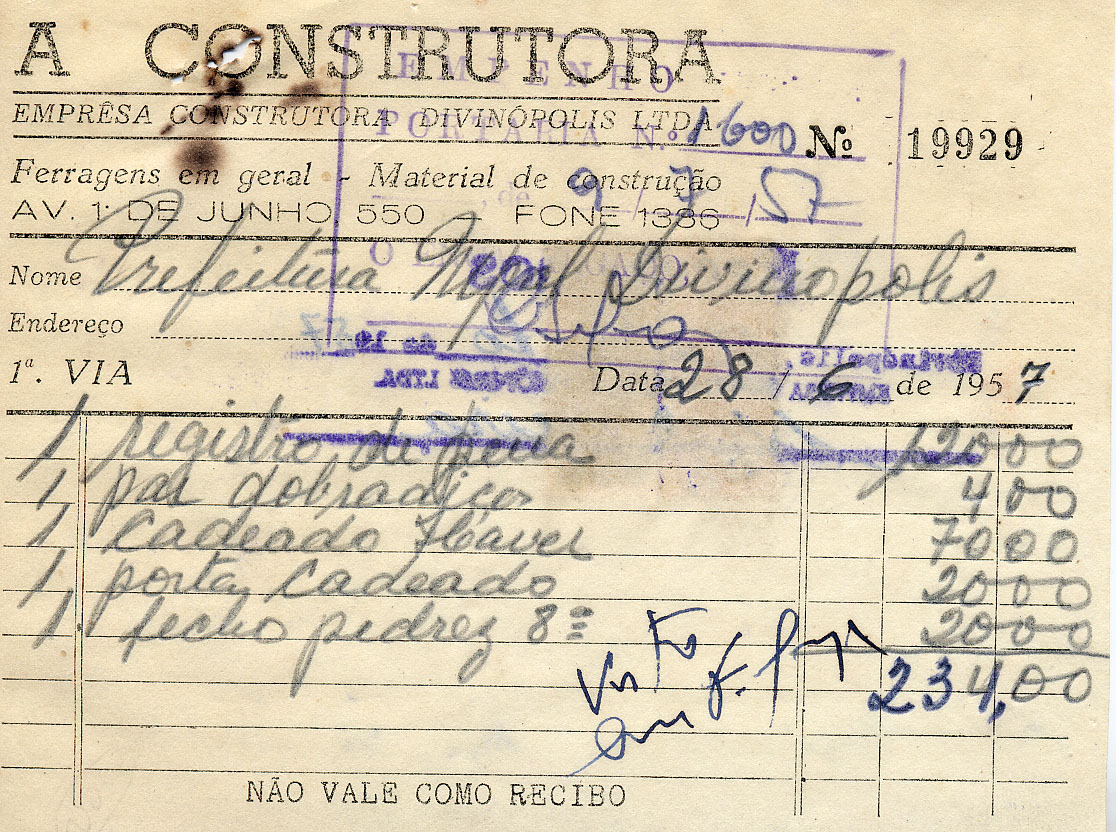 A CONSTRUTORA
EMPRÊSA CONSTRUTORA DIVINÓPOLIS LTDA
Nº 19929
EMPENHO
PORTARIA N.º 1600
9 / 7 / 57
Ferragens em geral - Material de construção
AV. 1º DE JUNHO, 550 - FONE 1386
Nome Prefeitura Mpal Divinopolis
Endereço
1ª. VIA Data 28 / 6 de 1957
de 19 57
LTDA.
1 registro de 120 00
1 par dobradiças 4 00
1 cadeado 70 00
1 porta cadeado 20 00
1 fecho pedrez 8" 20 00
234,00
Visto
em
NÃO VALE COMO RECIBO